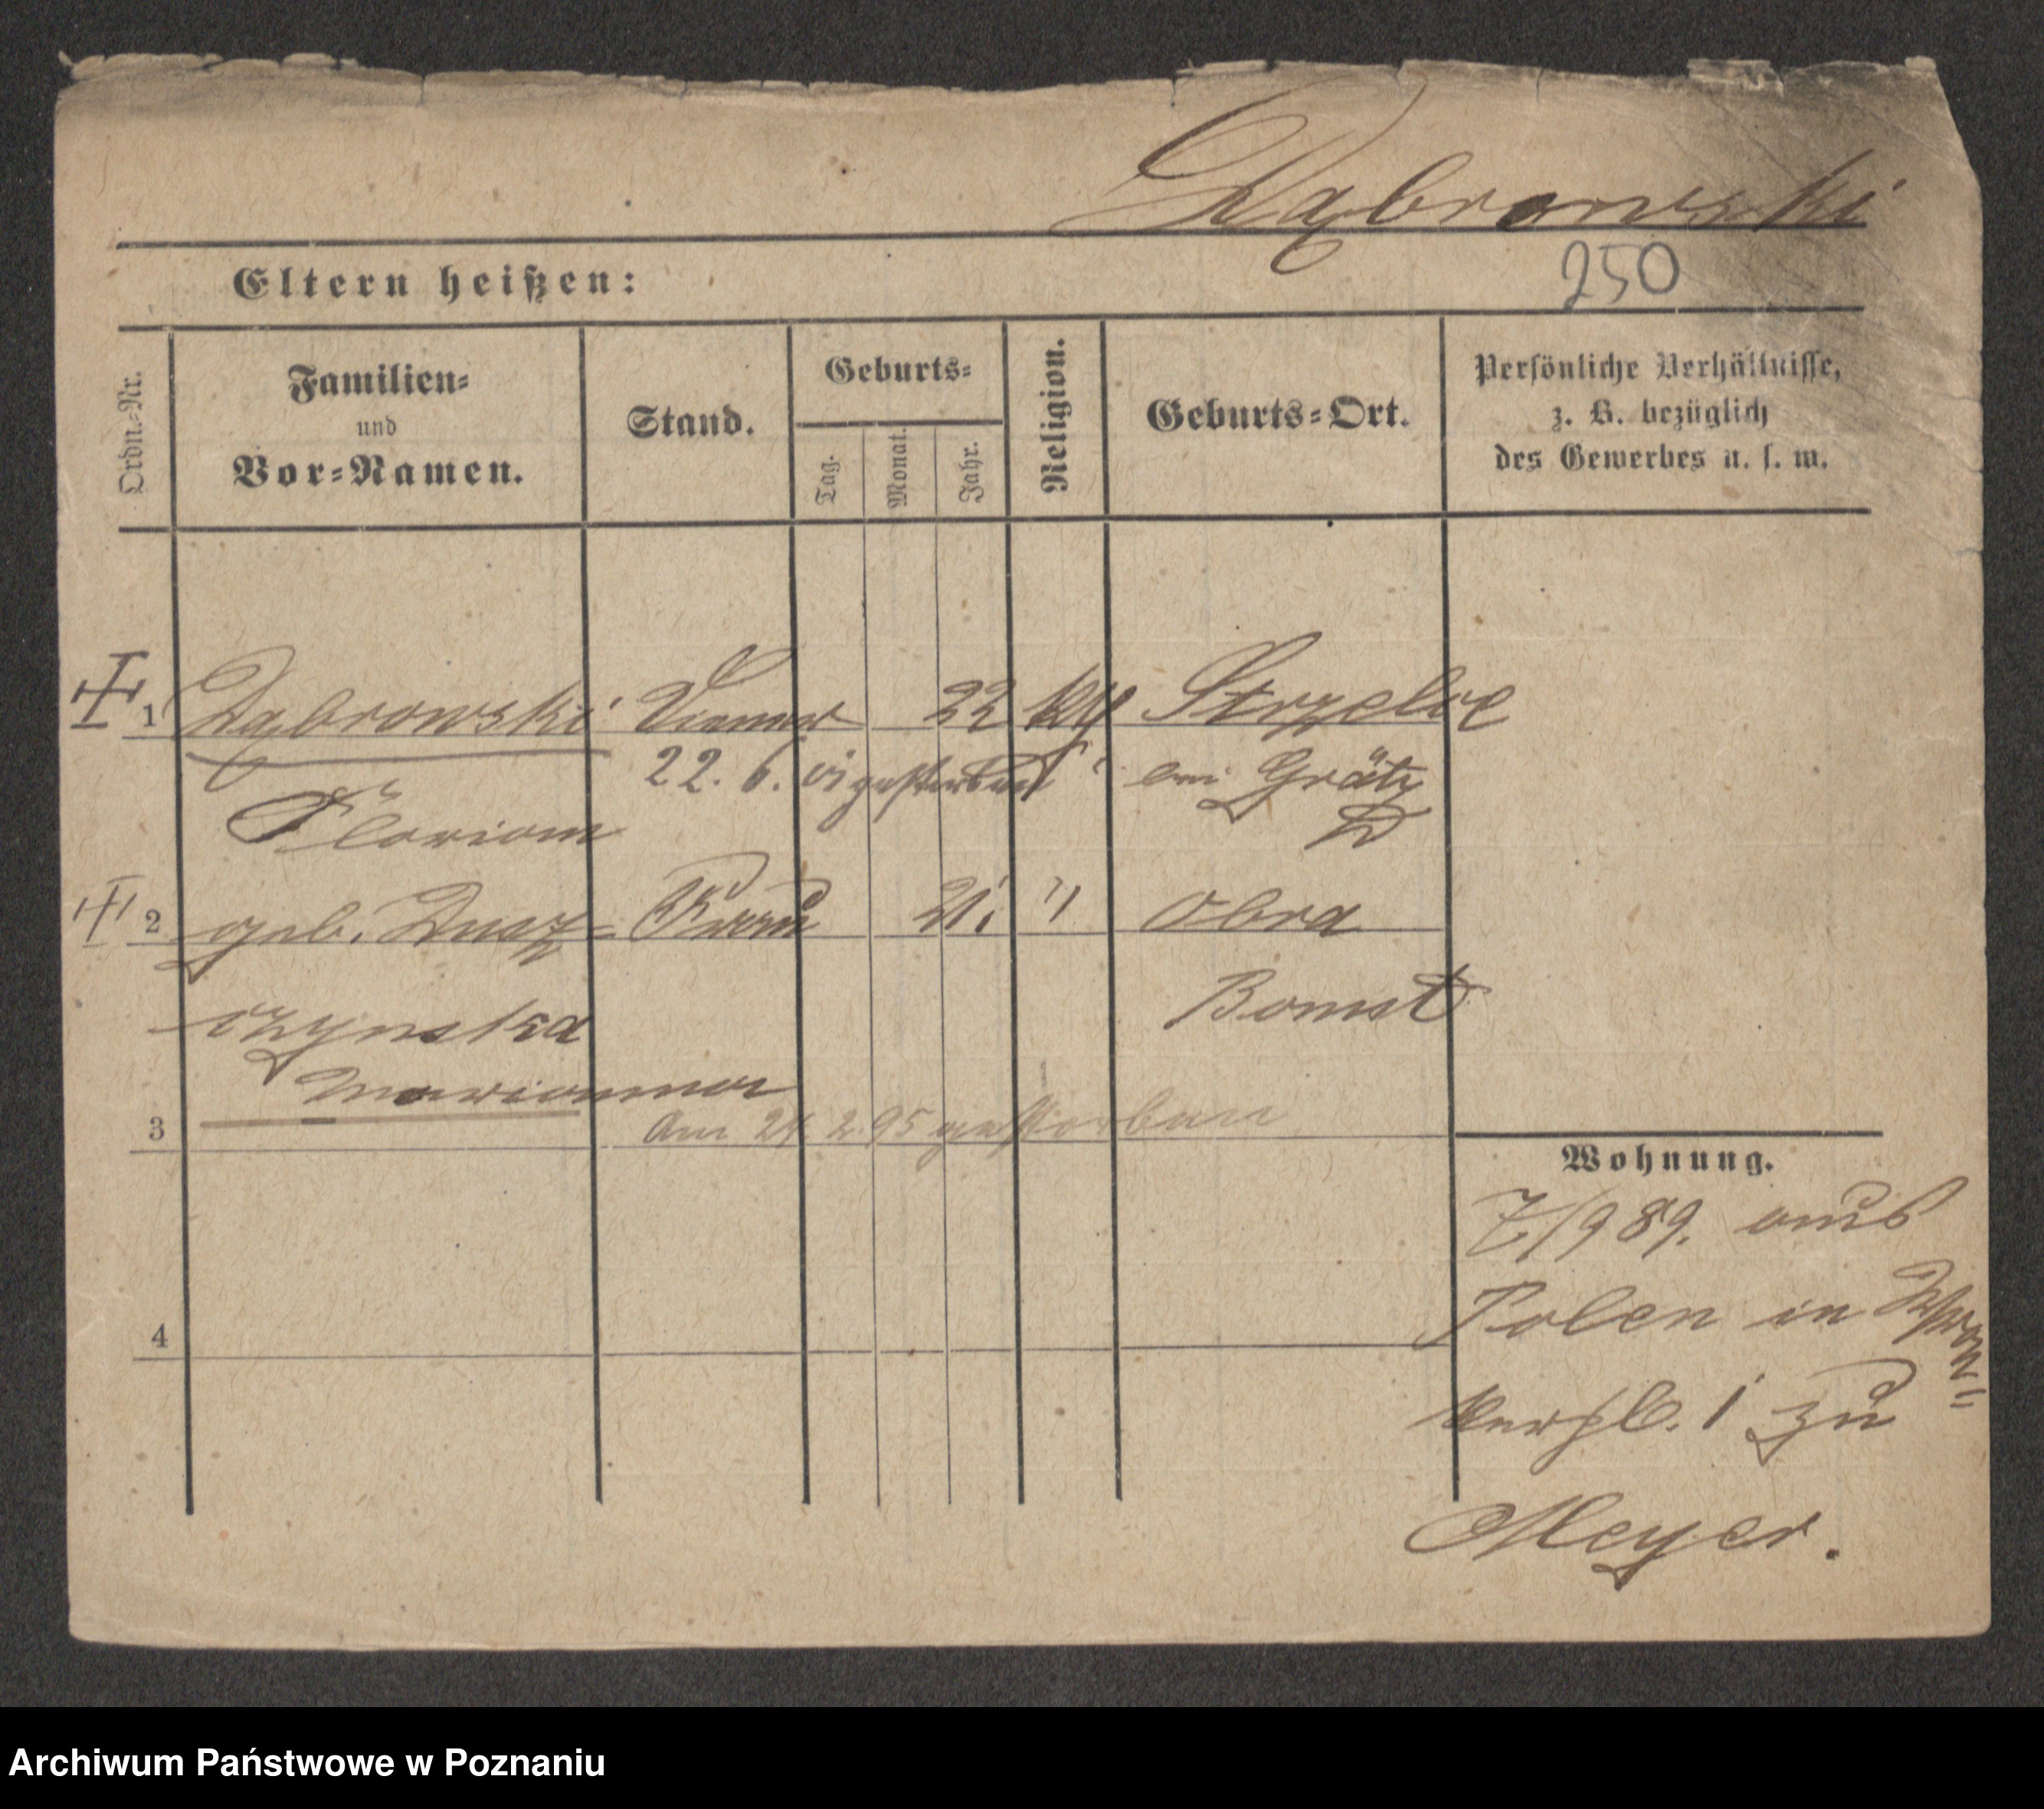 Dąbrowski
250
Eltern heißen:
Ordn.-Nr.
Familien-
und
Vor-Namen.
Stand.
Geburts-
Tag.
Monat.
Jahr.
Religion.
Geburts-Ort.
Persönliche Verhältnisse,
z. B. bezüglich
des Gewerbes u. s. w.
1 Dąbrowski 22 Strzelce
22. 6. 01 gestorben Grätz
Florian
2 geb. Dusz= Frau 21. " Obra
czynska Bomst
Marianna
3 Am 24 2. 95 gestorben
Wohnung.
7/9 89. aus
4
Polen in Wron=
kerpl. 1 zu
Meyer.
Archiwum Państwowe w Poznaniu